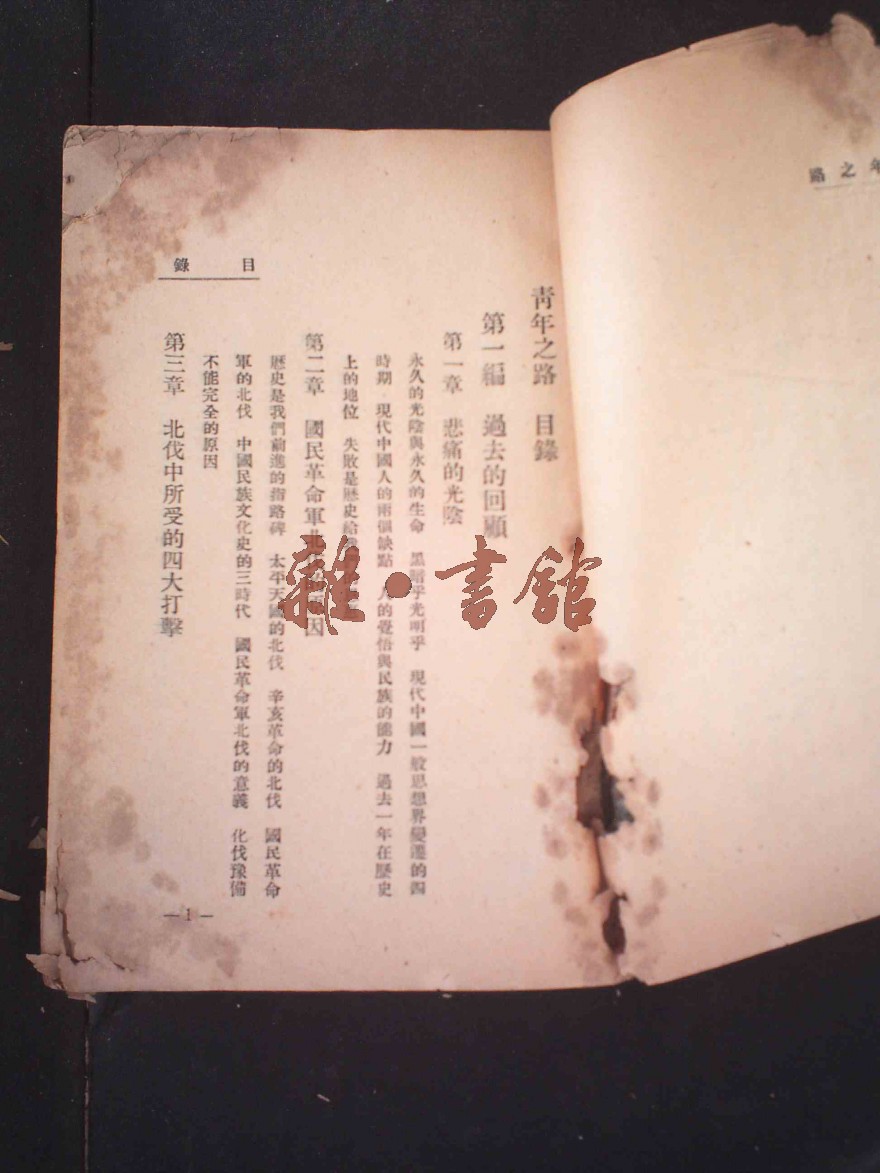 年之路
青年之路 目錄
第一編 過去的回顧
第一章 悲痛的光陰
永久的光陰與永久的生命 黑暗乎光明乎 現代中國一般思想界變遷的四
時期 現代中國人的兩個缺點 人的覺悟與民族的能力 過去一年在歷史
上的地位 失敗是歷史給
第二章 國民革命軍北伐的原因
歷史是我們前進的指路碑 太平天國的北伐 辛亥革命的北伐 國民革命
軍的北伐 中國民族文化史的三時代 國民革命軍北伐的意義 化伐豫備
不能完全的原因
第三章 北伐中所受的四大打擊
目錄
—1—
雜·書館